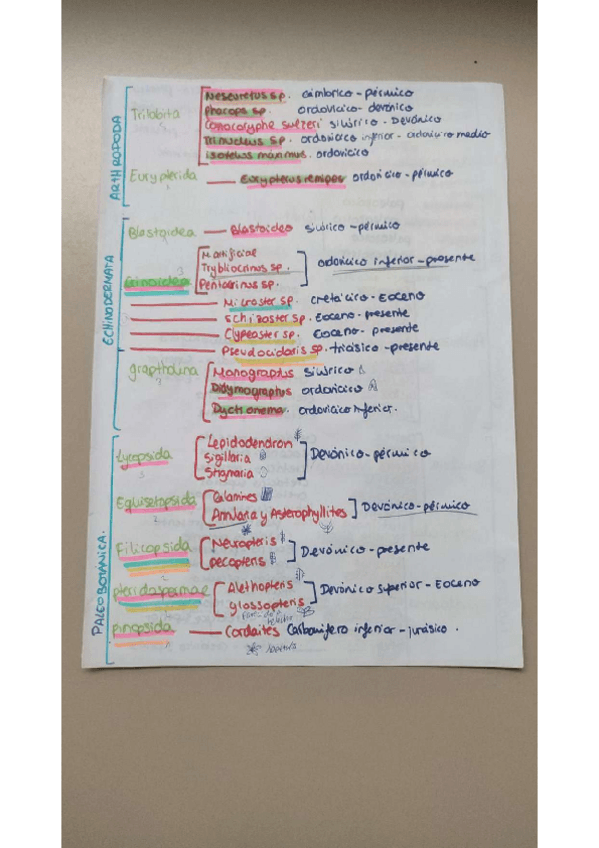 ARTHROPODA
Trilobita
Neseuretus sp. cámbrico - pérmico
Phacops sp. ordovícico - devónico
Conocoryphe sulzeri silúrico - Devónico
Trinucleus sp. ordovicico inferior - ordovicico medio
isotelus máximus. ordovicico
Eurypterida Eurypterus remipes ordovicico - pérmico
ECHINODERMATA
Blastoidea Blastoideo silúrico - pérmico
Crinoidea
Tryblocrinus sp.
Pentacrinus sp.
ordovicico inferior - presente
Micraster sp. cretácico - Eoceno
Schizaster sp. Eoceno - presente
Clypeaster sp. Eoceno - presente
Pseudocidaris sp. triásico - presente
Monograptus silúrico
Didymograptus ordovicico
ordovicico inferior.
PALEOBOTÁNICA.
Lycopsida
Lepidodendron
Sigillaria
Stigmaria
Devónico - pérmico
Equisetopsida
Calamines
Annularia y Asterophyllites
Devónico - pérmico
Filicopsida
Neuropteris
pecopteris
Devónico - presente
pteridospermae
Alethopteris
glossopteris
Devónico superior - Eoceno
pinopsida Cordaites Carbonífero inferior - jurásico.